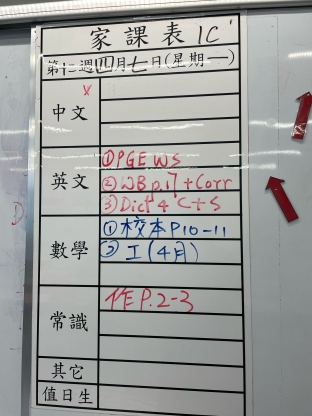 家課表 1C
第十二週四月七日(星期一)
中文
x
英文
① PGE WS
② WB p.17 + Corr
③ Dict 4 C+S
數學
① 校本 P10-11
② 工(4月)
常識
作 P.2-3
其它
值日生